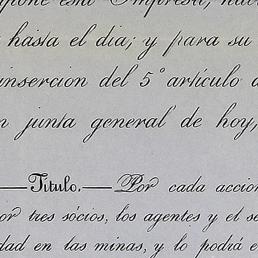 esta Empresa,
hasta el dia; y para su
insercion del 5º artículo
junta general de hoy,
—Título.—Por cada accion
por tres sócios, los agentes y el
en las minas, y lo podrá